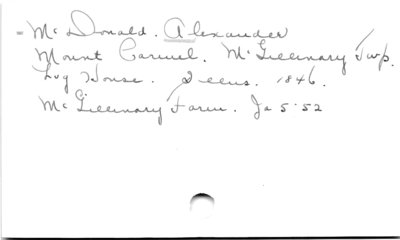 Mc Donald. Alexander
Mount Carmel. McGillivray Twp.
Log House. 1846.
McGillivray Farm. Ja 5·52